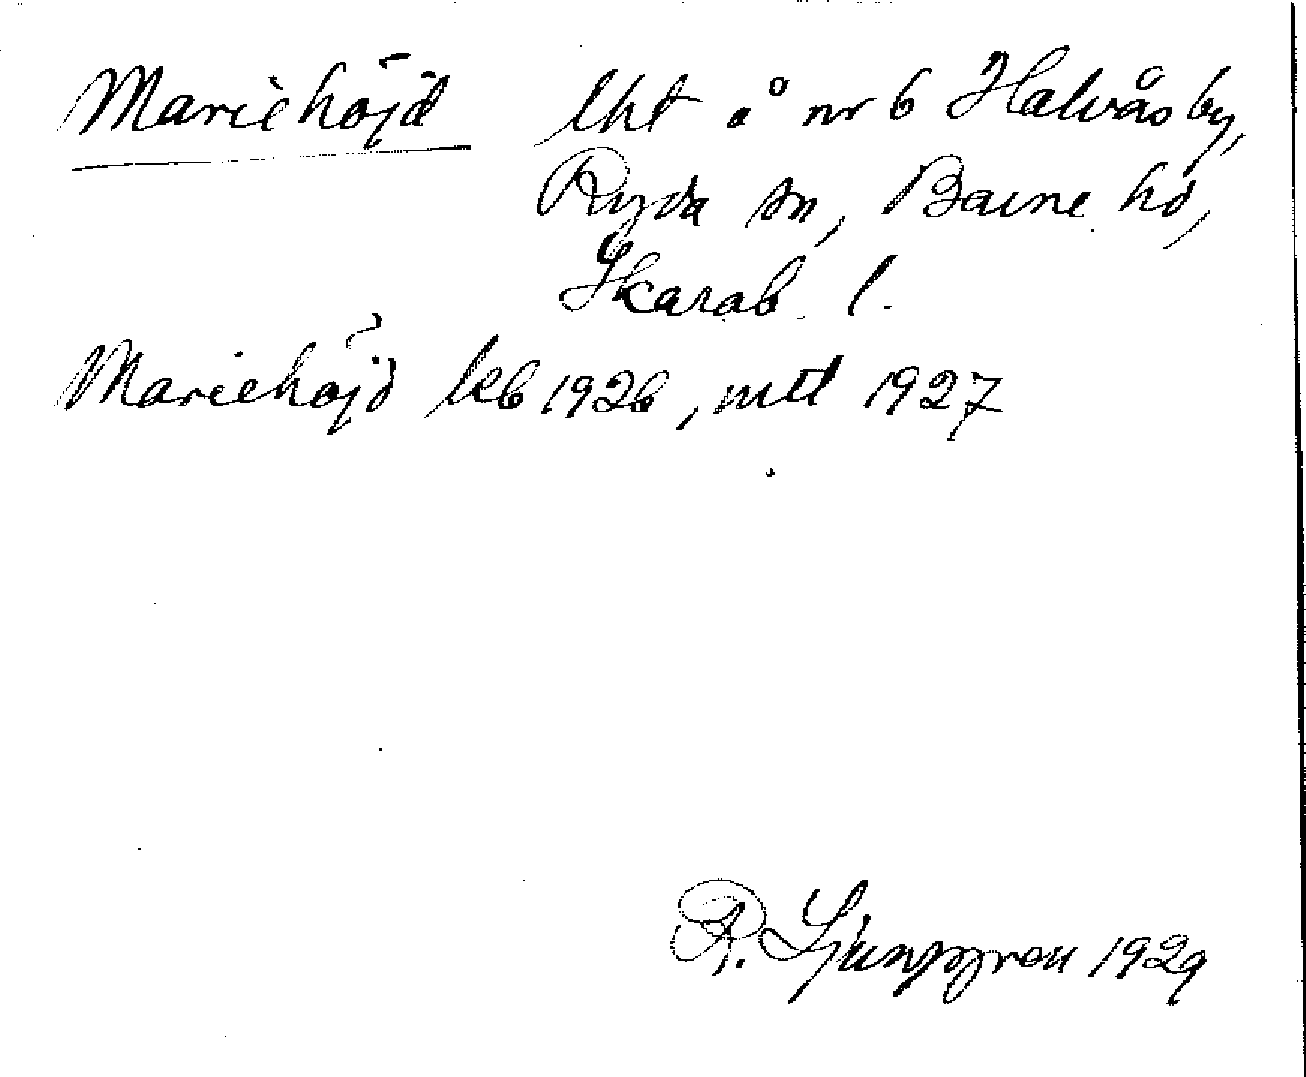 Mariehöjd lht å nr 6 Halvås by,
Ryda sn, Barne hd,
Skarab. l.
Mariehöjd kb 1926, mtl 1927
R. Ljunggren 1929